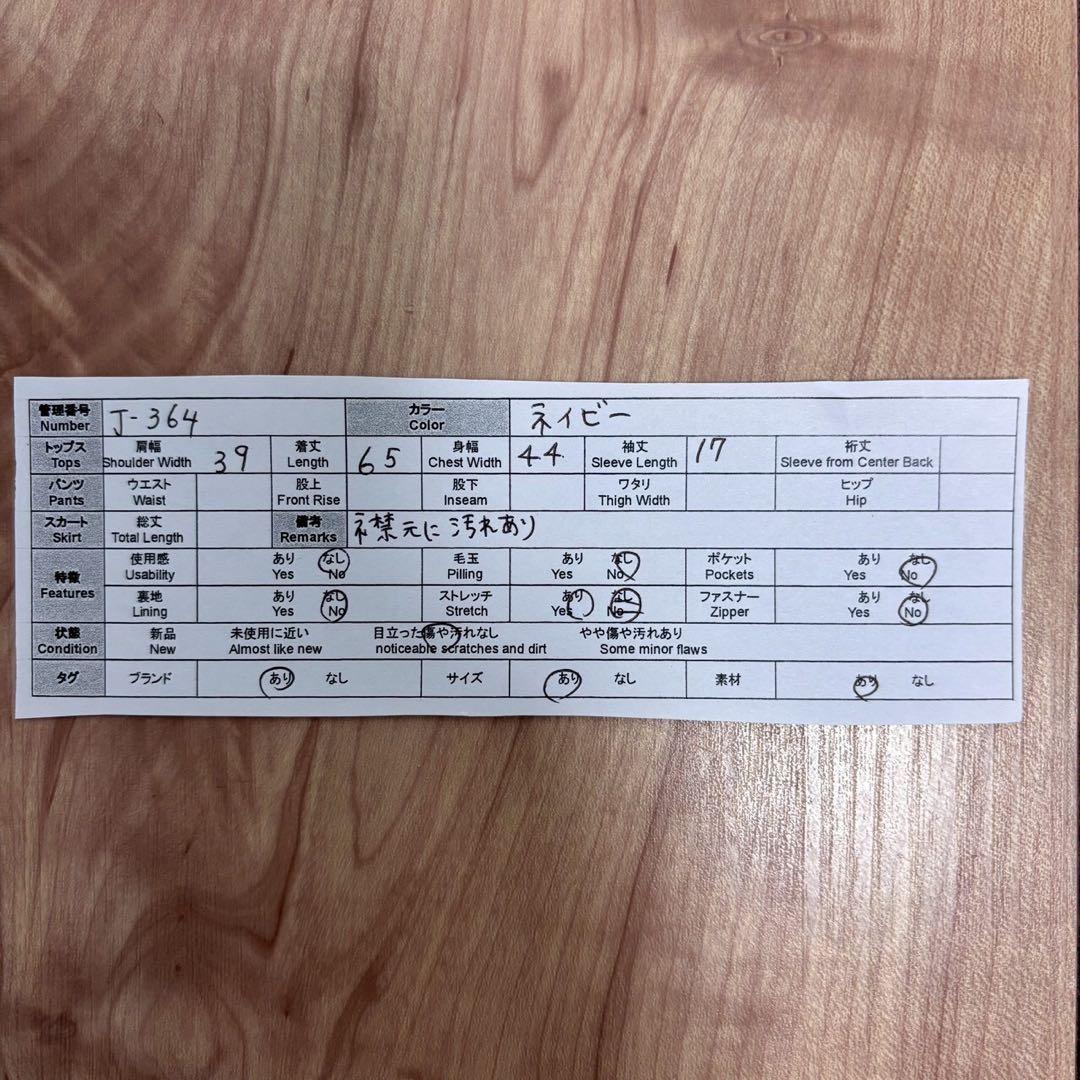 管理番号 Number J-364 カラー Color ネイビー
トップス Tops 肩幅 Shoulder Width 39 着丈 Length 65 身幅 Chest Width 44 袖丈 Sleeve Length 17 裄丈 Sleeve from Center Back
パンツ Pants ウエスト Waist 股上 Front Rise 股下 Inseam ワタリ Thigh Width ヒップ Hip
スカート Skirt 総丈 Total Length 備考 Remarks 襟元に汚れあり
特徴 Features 使用感 Usability あり Yes なし No 毛玉 Pilling あり Yes なし No ポケット Pockets あり Yes なし No
裏地 Lining あり Yes なし No ストレッチ Stretch あり Yes なし No ファスナー Zipper あり Yes なし No
状態 Condition 新品 New 未使用に近い Almost like new 目立った傷や汚れなし noticeable scratches and dirt やや傷や汚れあり Some minor flaws
タグ ブランド あり なし サイズ あり なし 素材 あり なし